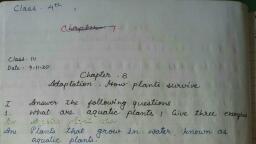 Class - 4th
Chapter 7
Class - IV
Date - 9-11-20
Chapter - 8
Adaptation : How plants survive
I Answer the following questions
1. What are aquatic plants ; Give three examples
Ans Plants that grow in water known as
aquatic plants.